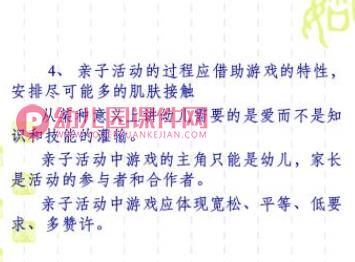 4、 亲子活动的过程应借助游戏的特性，
安排尽可能多的肌肤接触
从某种意义上讲幼儿需要的是爱而不是知
识和技能的灌输。
亲子活动中游戏的主角只能是幼儿，家长
是活动的参与者和合作者。
亲子活动中游戏应体现宽松、平等、低要
求、多赞许。
幼儿园课件网